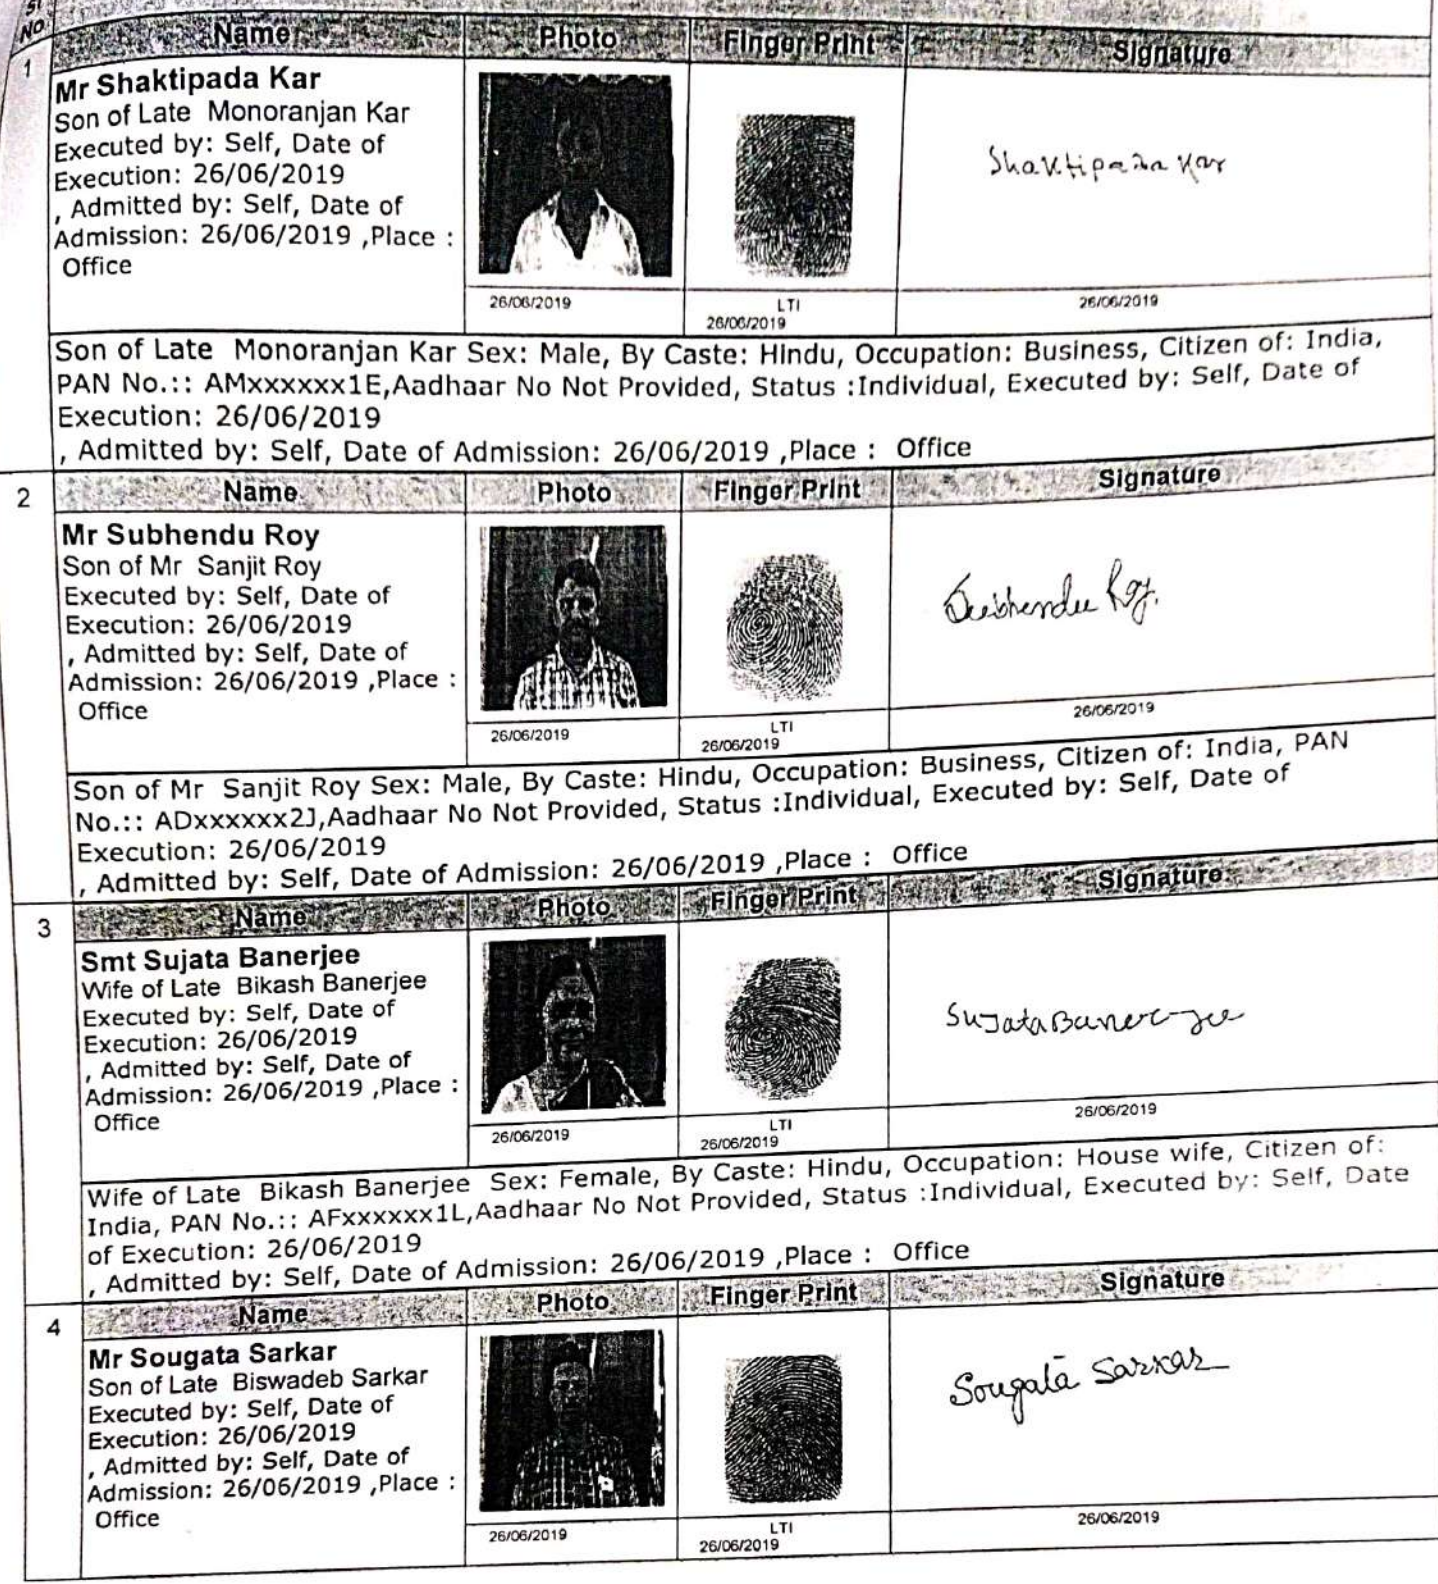 Sl
No
Name Photo Finger Print Signature
1
Mr Shaktipada Kar
Son of Late Monoranjan Kar
Executed by: Self, Date of
Execution: 26/06/2019
, Admitted by: Self, Date of
Admission: 26/06/2019 ,Place :
Office
Shaktipada Kar
26/06/2019
LTI
26/06/2019
26/06/2019
Son of Late Monoranjan Kar Sex: Male, By Caste: Hindu, Occupation: Business, Citizen of: India,
PAN No.:: AMxxxxxx1E,Aadhaar No Not Provided, Status :Individual, Executed by: Self, Date of
Execution: 26/06/2019
, Admitted by: Self, Date of Admission: 26/06/2019 ,Place : Office
2
Name Photo Finger Print Signature
Mr Subhendu Roy
Son of Mr Sanjit Roy
Executed by: Self, Date of
Execution: 26/06/2019
, Admitted by: Self, Date of
Admission: 26/06/2019 ,Place :
Office
Subhendu Roy.
26/06/2019
LTI
26/06/2019
26/06/2019
Son of Mr Sanjit Roy Sex: Male, By Caste: Hindu, Occupation: Business, Citizen of: India, PAN
No.:: ADxxxxxx2J,Aadhaar No Not Provided, Status :Individual, Executed by: Self, Date of
Execution: 26/06/2019
, Admitted by: Self, Date of Admission: 26/06/2019 ,Place : Office
3
Name Photo Finger Print Signature
Smt Sujata Banerjee
Wife of Late Bikash Banerjee
Executed by: Self, Date of
Execution: 26/06/2019
, Admitted by: Self, Date of
Admission: 26/06/2019 ,Place :
Office
Sujata Banerjee
26/06/2019
LTI
26/06/2019
26/06/2019
Wife of Late Bikash Banerjee Sex: Female, By Caste: Hindu, Occupation: House wife, Citizen of:
India, PAN No.:: AFxxxxxx1L,Aadhaar No Not Provided, Status :Individual, Executed by: Self, Date
of Execution: 26/06/2019
, Admitted by: Self, Date of Admission: 26/06/2019 ,Place : Office
4
Name Photo Finger Print Signature
Mr Sougata Sarkar
Son of Late Biswadeb Sarkar
Executed by: Self, Date of
Execution: 26/06/2019
, Admitted by: Self, Date of
Admission: 26/06/2019 ,Place :
Office
Sougata Sarkar
26/06/2019
LTI
26/06/2019
26/06/2019